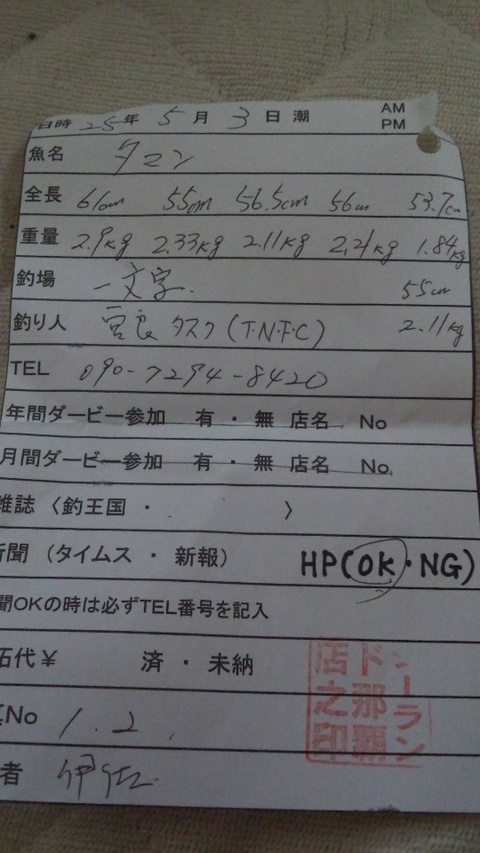 日時 25年 5月 3日 潮 AM PM
魚名 タマン
全長 61cm 55cm 56.5cm 56cm 53.7cm
重量 2.9kg 2.33kg 2.11kg 2.21kg 1.84kg
釣場 一文字. 55cm
釣り人 宮良 タスク (T.N.F.C) 2.11kg
TEL 090-7294-8420
年間ダービー参加 有・無 店名 No
月間ダービー参加 有・無 店名 No
雑誌〈釣王国・ 〉
新聞(タイムス・新報) HP(OK・NG)
聞OKの時は必ずTEL番号を記入
拓代¥ 済・未納
No 1.2.
者 伊佐
シーラン
ド那覇
店之印